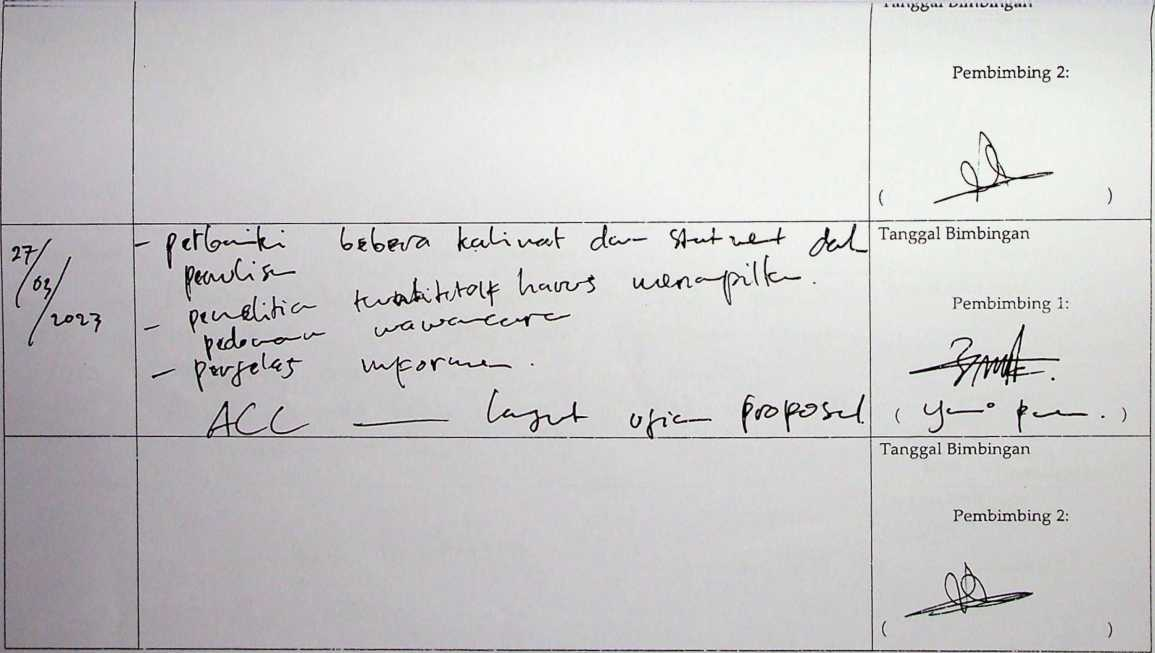 Tanggal Bimbingan
Pembimbing 2:
( )
27/03/2023
- perbaiki bebera kalimat dan Statment dal
penulisa
- penelitian harus menampilka.
pedoman wawancara
- perjelas informan.
ACC — lanjut ujian proposal
Tanggal Bimbingan
Pembimbing 1:
( )
Tanggal Bimbingan
Pembimbing 2:
( )